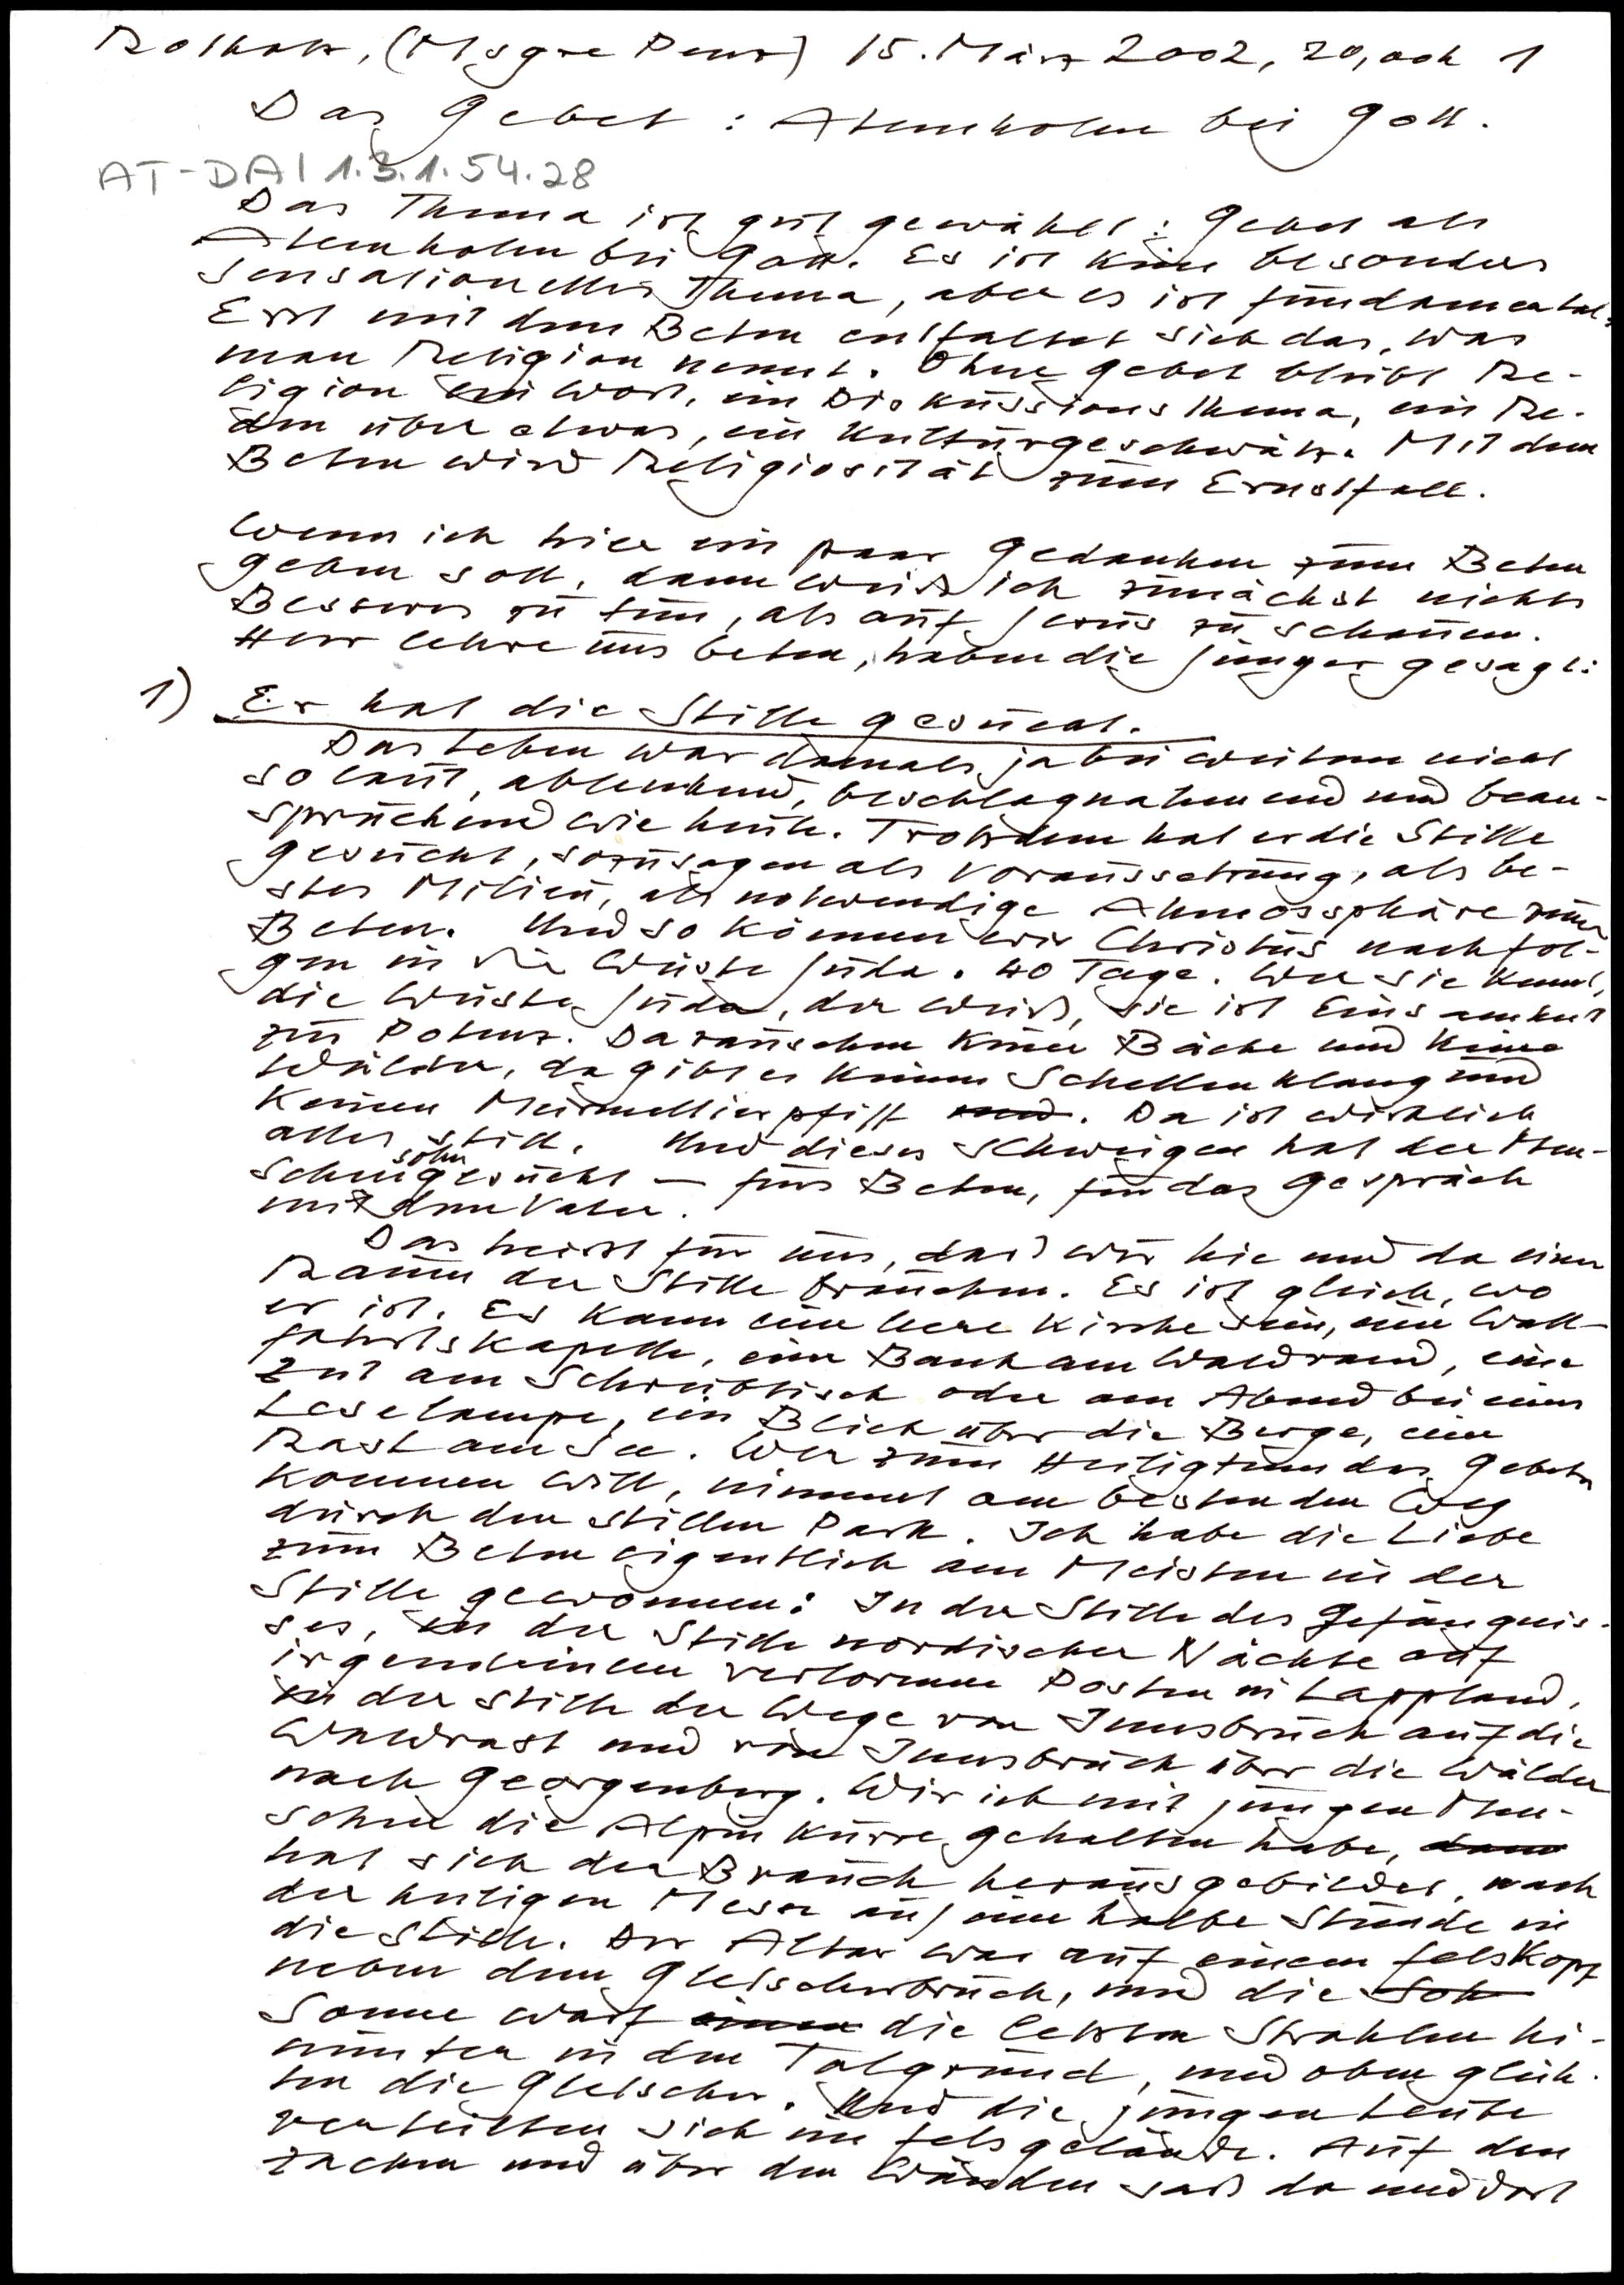 Rotholz, (Msgre Penz) 15. März 2002, 20,00h 1
Das Gebet : Atemholen bei Gott.
AT-DAI 1.3.1.54.28
Das Thema ist gut gewählt: Gebet als
Atemholen bei Gott. Es ist kein besonders
sensationelles Thema, aber es ist fundamental.
Erst mit dem Beten entfaltet sich das, was
man Religion nennt. Ohne Gebet bleibt Re-
ligion ein Wort, ein Diskussionsthema, ein Re-
den über etwas, ein Kulturgeschwätz. Mit dem
Beten wird Religiosität zum Ernstfall.
Wenn ich hier ein paar Gedanken zum Beten
geben soll, dann weiß ich zunächst nichts
Besseres zu tun, als auf Jesus zu schauen.
Herr lehre uns beten, haben die Jünger gesagt:
1) Er hat die Stille gesucht.
Das Leben war damals ja bei weitem nicht
so laut, ablenkend, beschlagnahmend und bean-
spruchend wie heute. Trotzdem hat er die Stille
gesucht, sozusagen als Voraussetzung, als be-
stes Milieu, als notwendige Atmossphäre zum
Beten. Und so können wir Christus nachfol-
gen in die Wüste Juda. 40 Tage. Wer sie kennt,
die Wüste Juda, der weiß, sie ist Einsamkeit
zur Potenz. Da rauschen keine Bäche und keine
Wälder, da gibt es keinen Schellenklang und
keinen Murmeltierpfiff und. Da ist wirklich
alles still. Und dieses Schweigen hat der Men-
schensohn gesucht – fürs Beten, für das Gespräch
mit dem Vater.
Das heisst für uns, daß wir hie und da einen
Raum der Stille brauchen. Es ist gleich, wo
er ist. Es kann eine leere Kirche sein, eine Wall-
fahrtskapelle, eine Bank am Waldrand, eine
Zeit am Schreibtisch oder am Abend bei einer
Leselampe, ein Blick über die Berge, eine
Rast am See. Wer zum Heiligtum des Gebetes
kommen will, nimmt am besten den Weg
durch den stillen Park. Ich habe die Liebe
zum Beten eigentlich am Meisten in der
Stille gewonnen: In der Stille des Gefängnis-
ses, in der Stille nordischer Nächte auf
irgendeinem verlorenen Posten in Lappland,
in der Stille der Wege von Innsbruck auf die
Waldrast und von Innsbruck über die Wälder
nach Georgenberg. Wie ich mit jungen Men-
schen die Alpinkurse gehalten habe, dann
hat sich der Brauch herausgebildet, nach
der heiligen Messe auf eine halbe Stunde in
die Stille. Der Altar war auf einem Felskopf
neben dem Gletscherbruch, und die Soh
Sonne warf einen die letzten Strahlen hi-
nunter in den Talgrund, und oben glüh-
ten die Gletscher. Und die jungen Leute
verteilten sich im Felsgelände. Auf den
Zacken und über den Wänden saß da und dort